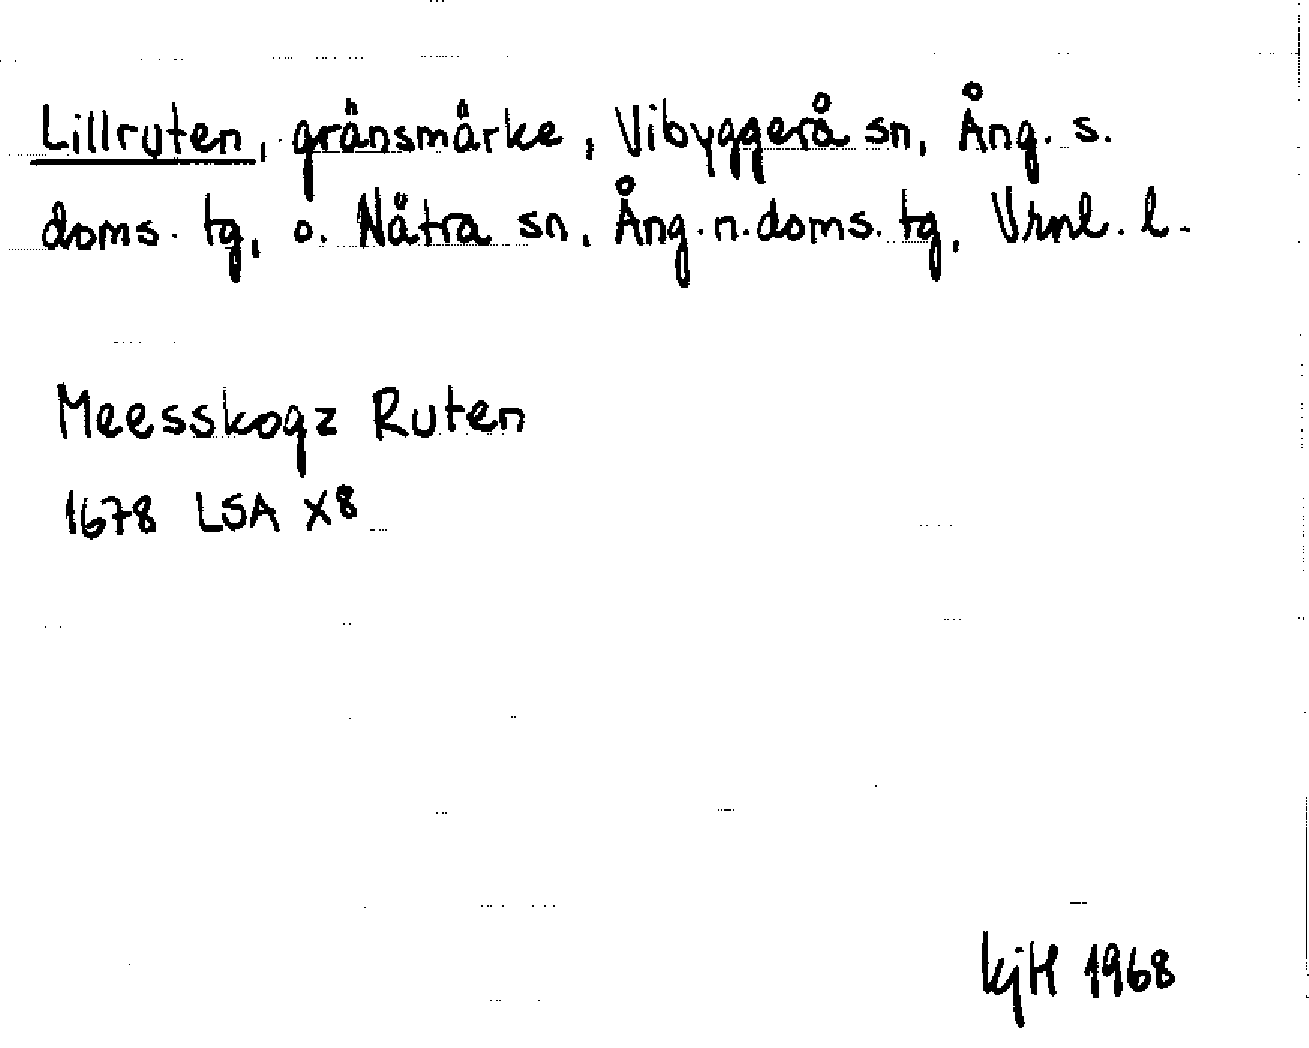 Lillruten, gränsmärke, Vibyggerå sn, Ång. s.
doms. tg, o. Nätra sn, Ång. n. doms. tg, Vrnl. l.
Meesskogz Ruten
1678 LSA X8
kjH 1968